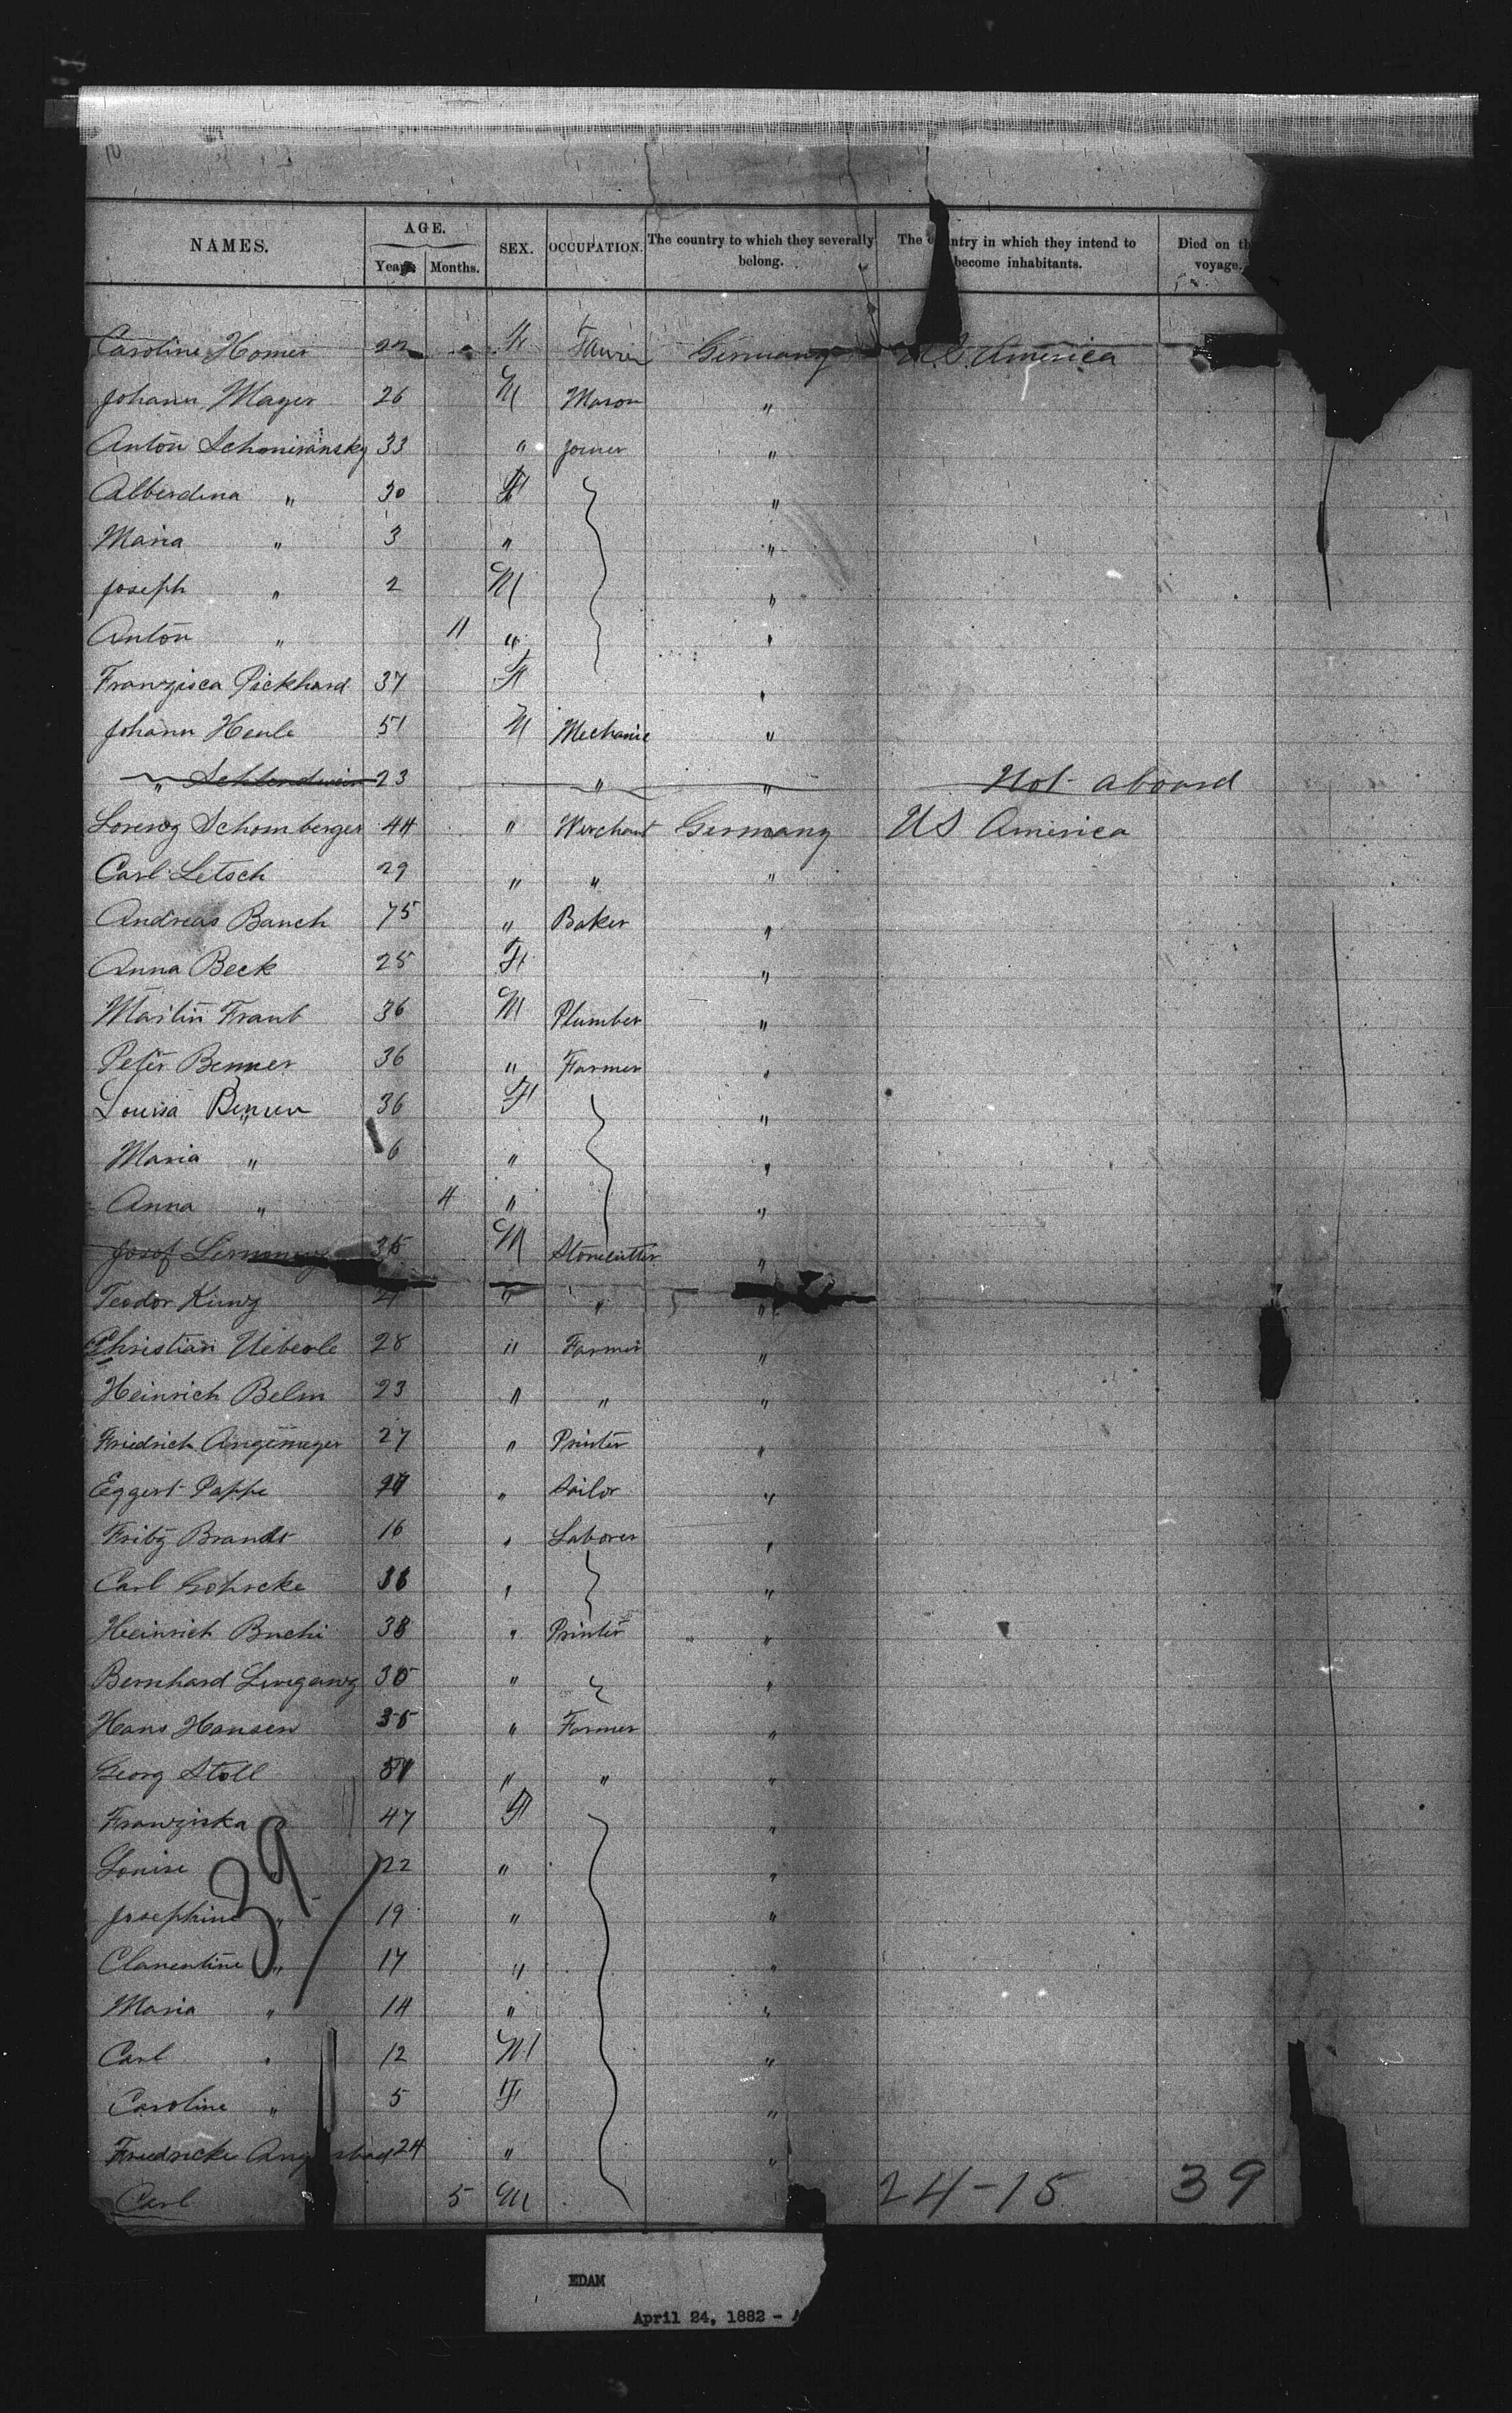 NAMES. AGE. SEX. OCCUPATION. The country to which they severally belong. The country in which they intend to become inhabitants. Died on th voyage.
Years. Months.
Caroline Homer 22 F Germany U.S. America
Johann Mager 26 M Mason "
Anton 33 " Joiner "
Alberdina " 30 F "
Maria " 3 " "
Joseph " 2 M "
Anton " 11 " "
Franzisca Pickhard 37 F "
Johann Henle 51 M Mechanic "
" 23 " " Not aboard
Lorenz Schomberger 44 " Merchant Germany US America
Carl Letsch 29 " " "
Andreas Bauch 75 " Baker "
Anna Beck 25 F "
Martin Traub 36 M Plumber "
Peter Benner 36 " Farmer "
Louisa 36 F "
Maria " 6 " "
Anna " 4 " "
Josef M Stonecutter "
Teodor Kunz 21 " " "
Christian Ueberle 28 " Farmer "
Heinrich Belm 23 " " "
Friedrich Angemeyer 27 " Printer "
Eggert Pappe " Sailor "
Fritz Brandt 16 " Laborer "
Carl Gohrcke 36 " "
Heinrich Buchi 38 " Printer "
Bernhard 30 " "
Hans Hansen 35 " Farmer "
Georg Stoll 51 " " "
Franziska " 47 F "
Louise " 22 " "
Josephine " 19 " "
Clementine " 17 " "
Maria " 14 " "
Carl " 12 M "
Caroline " 5 F "
Friedricke 24 " "
Carl 5 M
39/
24-15 39
EDAM
April 24, 1882 -